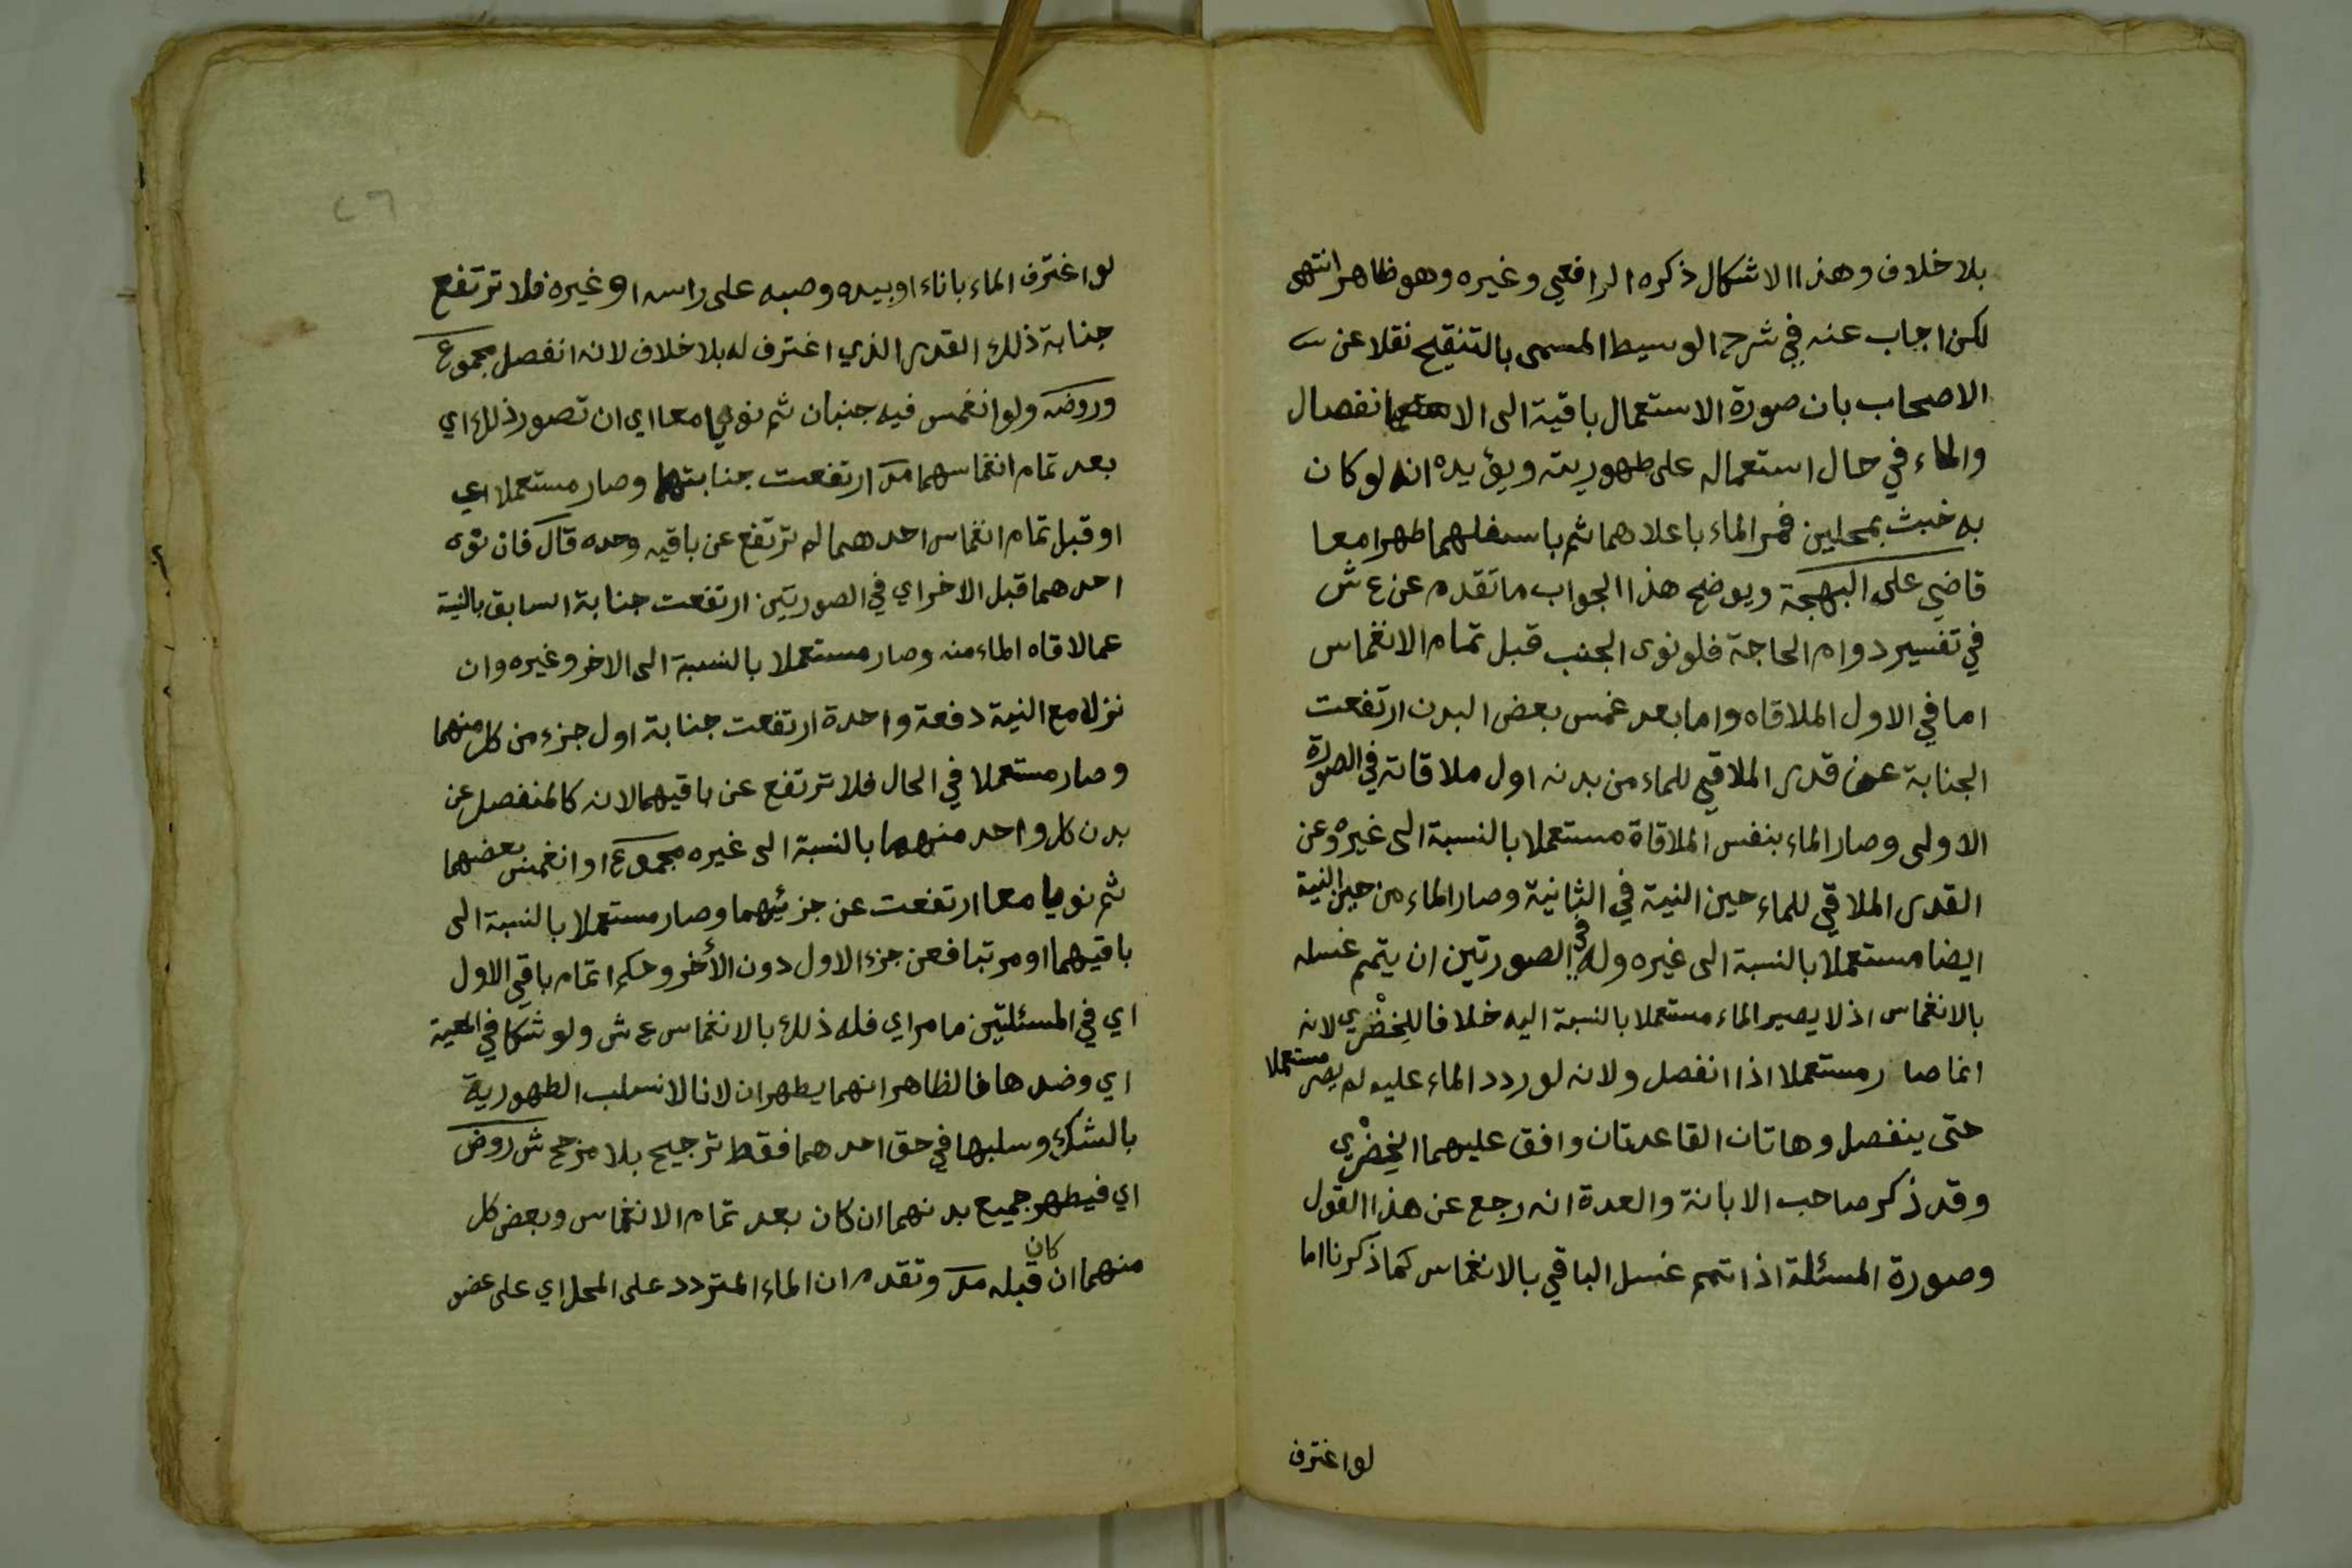 بلا خلاف وهذا الاشكال ذكره الرافعي وغيره وهو ظاهر انتهى
لكن اجاب عنه في شرح الوسيط المسمى بالتنقيح نقلا عن
الاصحاب بان صورة الاستعمال باقية الى الانفصال
والماء في حال استعماله على طهوريته ويؤيده انه لو كان
به خبث بمحلين فمر الماء باعلاهما ثم باسفلهما طهرا معا
قاضي على البهجة ويوضح هذا الجواب ما تقدم عن ع ش
في تفسير دوام الحاجة فلو نوى الجنب قبل تمام الانغماس
اما في الاول الملاقاه واما بعد غمس بعض البدن ارتفعت
الجنابة عن قدر الملاقي للماء من بدنه اول ملاقاته في الصورة
الاولى وصار الماء بنفس الملاقاة مستعملا بالنسبة الى غيره وعن
القدر الملاقي للماء حين النية في الثانية وصار الماء من حين النية
ايضا مستعملا بالنسبة الى غيره وله في الصورتين ان يتمم غسله
بالانغماس اذ لا يصير الماء مستعملا بالنسبة اليه خلافا للخضري لانه
انما صار مستعملا اذا انفصل ولانه لو ردد الماء عليه لم يصر مستعملا
حتى ينفصل وهاتان القاعدتان وافق عليهما الخضري
وقد ذكر صاحب الابانة والعدة انه رجع عن هذا القول
وصورة المسئلة اذا تمم غسل الباقي بالانغماس كما ذكرنا اما
لو اغترف
٢٦
لو اغترف الماء باناء او بيده وصبه على راسه او غيره فلا ترتفع
جنابة ذلك القدر الذي اغترف له بلا خلاف لانه انفصل مجموع
وروضه ولو انغمس فيه جنبان ثم نويا معا اي ان تصور ذلك اي
بعد تمام انغماسهما مر ارتفعت جنابتهما وصار مستعملا اي
او قبل تمام انغماس احدهما لم ترتفع عن باقيه وحده قال فان نوى
احدهما قبل الاخر اي في الصورتين ارتفعت جنابة السابق بالنية
عما لاقاه الماء منه وصار مستعملا بالنسبة الى الاخر وغيره وان
نزلا مع النية دفعة واحدة ارتفعت جنابة اول جزء من كل منهما
وصار مستعملا في الحال فلا ترتفع عن باقيهما لانه كالمنفصل عن
بدن كل واحد منهما بالنسبة الى غيره مجموع او انغمس بعضهما
ثم نويا معا ارتفعت عن جزئيهما وصار مستعملا بالنسبة الى
باقيهما او مرتبا فعن جزء الاول دون الأخر وحكم اتمام باقي الاول
اي في المسئلتين ما مر اي فله ذلك بالانغماس ع ش ولو شكا في المعية
اي وضدها فالظاهر انهما يطهران لانا لا نسلب الطهورية
بالشك وسلبها في حق احدهما فقط ترجيح بلا مرجح ش روض
اي فيطهر جميع بدنهما ان كان بعد تمام الانغماس وبعض كل
منهما ان كان قبله مر وتقدم ان الماء المتردد على المحل اي على عضو